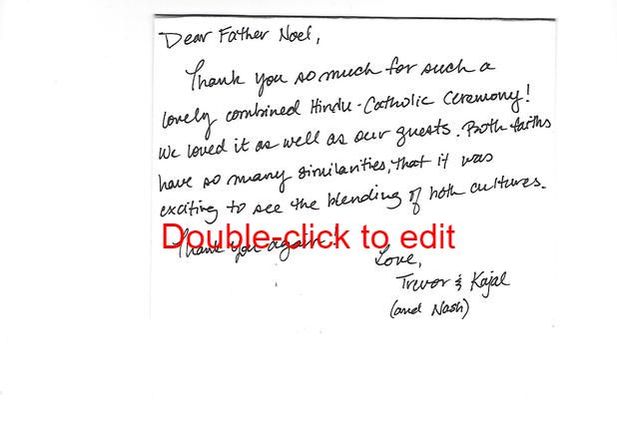 Dear Father Noel,
Thank you so much for such a
lovely combined Hindu-Catholic ceremony!
We loved it as well as our guests. Both faiths
have so many similarities, that it was
exciting to see the blending of both cultures.
Double-click to edit
Thank you again.
Love,
Trevor & Kajal
(and Nash)